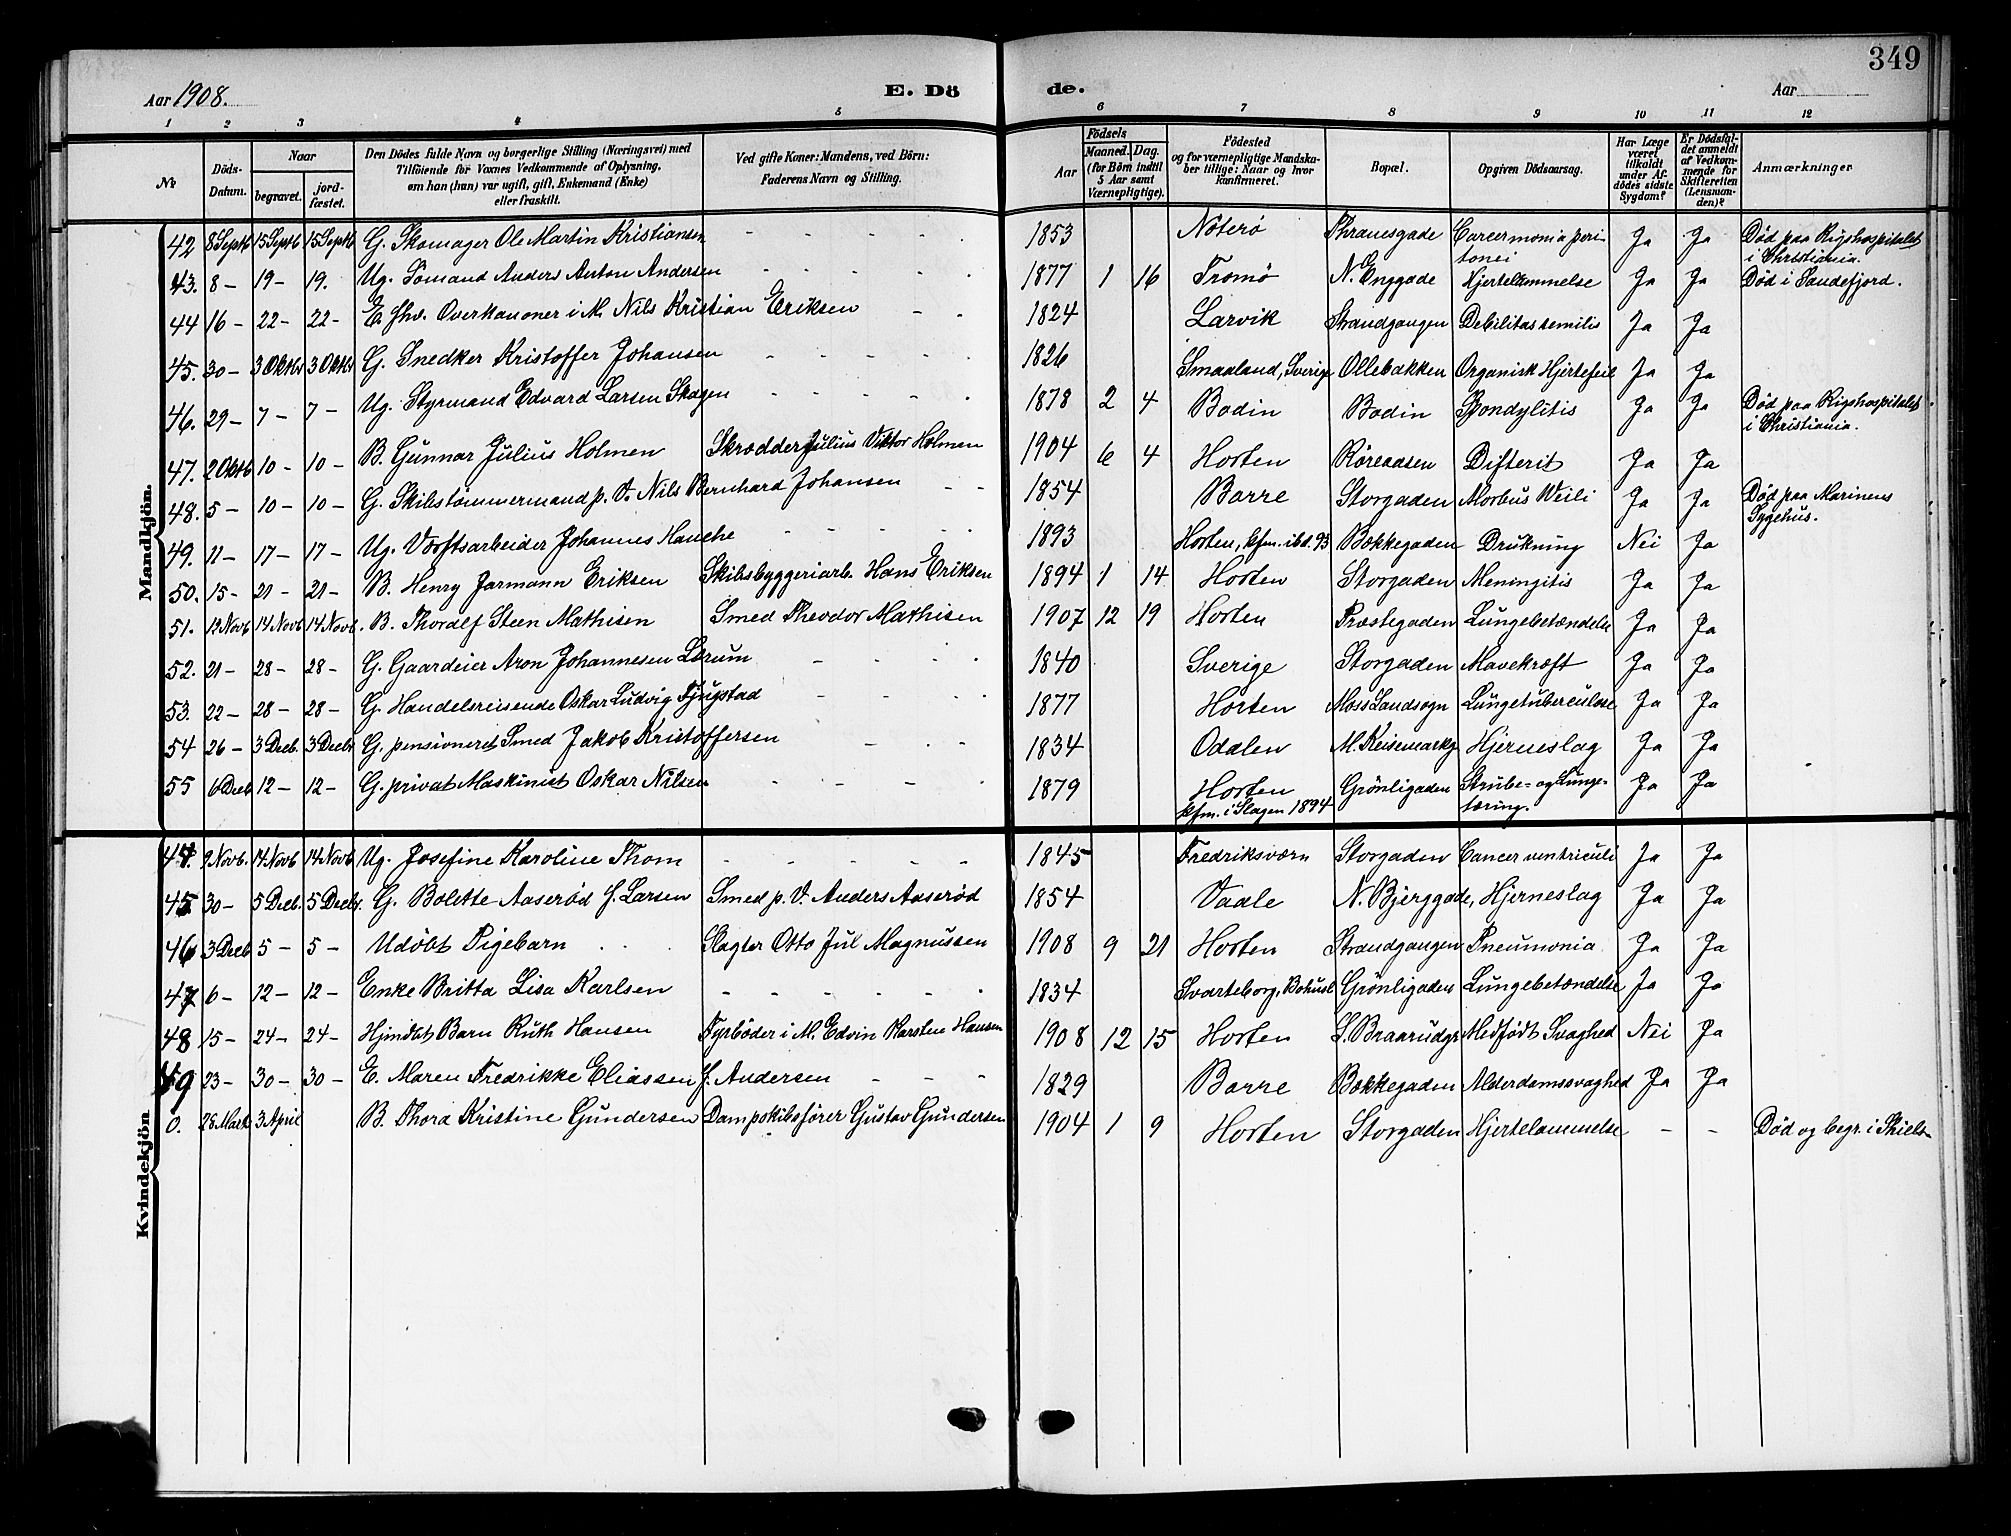 349
Aar 1908. E. Dö de. Aar
1 2 3 4 5 6 7 8 9 10 11 12
№ Döds-Datum. Naar begravet. jordfæstet. Den Dödes fulde Navn og borgerlige Stilling (Næringsvei) med Tilföiende for Voxnes Vedkommende af Oplysning, om han (hun) var ugift, gift, Enkemand (Enke) eller fraskilt. Ved gifte Koner: Mandens, ved Börn: Faderens Navn og Stilling. Födsels Aar Maaned. Dag. (for Börn indtil 5 Aar samt Værnepligtige). Födested og for værnepligtige Mandskaber tillige: Naar og hvor konfirmeret. Bopæl. Opgiven Dödsaarsag. Har Læge været tilkaldt under Afdödes sidste Sygdom? Er Dödsfaldet anmeldt af Vedkommende for Skifteretten (Lensmanden)? Anmærkninger
Mandkjön.
42 8 Septb 15 Septb 15 Septb G. Skomager Ole Martin Kristiansen - - - - 1853 Nöterö Thranesgade Carcermonia peritonei Ja Ja Död paa Rigshospitalet i Christiania.
43. 8 - 19 - 19. Ug. Sömand Anders Anton Andersen - - - - 1877 1 16 Tromö N. Enggade Hjertelammelse Ja Ja Död i Sandefjord.
44 16 - 22 - 22 - E. fhv. Overkanoner i M. Nils Kristian Eriksen - - 1824 Larvik Strandgangen Debilitas semilis Ja Ja
45. 30 - 3 Oktbr 3 Oktbr G. Snedker Kristoffer Johansen - - - - 1826 Smaaland, Sverige Ollebakken Organisk Hjertefeil Ja Ja
46. 29 - 7 - 7 - Ug. Styrmand Edvard Larsen Skagen - - - - 1878 2 4 Bodin Bodin Spondylitis Ja Ja Död paa Rigshospitalet i Christiania.
47. 2 Oktb 10 - 10 - B. Gunnar Julius Holmen Skrædder Julius Viktor Holmen 1904 6 4 Horten Röreaasen Difterit Ja Ja
48. 5 - 10 - 10 - G. Skibstömmermand p. V. Nils Bernhard Johansen - - 1854 Borre Storgaden Morbus Weili Ja Ja Död paa Marinens Sygehus.
49. 11 - 17 - 17 - Ug. Værftsarbeider Johannes Hauche - - - - 1893 Horten, kfm. ibd. 93 Bakkegaden Drukning Nei Ja
50. 15 - 21 - 21 - B. Henry Jarmann Eriksen Skibsbyggeriarb. Hans Eriksen 1894 1 14 Horten Storgaden Meningitis Ja Ja
51. 12 Novb 14 Novb 14 Novb. B. Thoralf Steen Mathisen Smed Theodor Mathisen 1907 12 19 Horten Præstegaden Lungebetændelse Ja Ja
52. 21 - 28 - 28 - G. Gaardeier Aron Johannesen Lørum - - - 1840 Sverige Storgaden Mavekræft Ja Ja
53. 22 - 28 - 28 - G. Handelsreisende Oskar Ludvig Fjugstad - - - 1877 Horten Moss Landsogn Lungetuberculose Ja Ja
54 26 - 3 Decb. 3 Decbr G. pensioneret Smed Jakob Kristoffersen - - - 1834 Odalen M. Keisemarkg Hjerneslag Ja Ja
55 6 Decb 12 - 12 - G. privat Maskinist Oskar Nilsen - - - - 1879 Horten kfm. i Slagen 1894 Grönligaden Strube- og Lungetæring. Ja Ja
Kvindekjön
44. 9 Novb. 14 Novb 14 Novb Ug. Josefine Karoline Thom - - - - - 1845 Fredriksværn Storgaden Cancer ventriculi Ja Ja
45 30 - 5 Decb. 5 Decbr. G. Bolette Aaseröd f. Larsen Smed p. V. Anders Aaseröd 1854 Vaale N. Bjerggade, Hjerneslag Ja Ja
46 3 Decb 5 - 5 - Udöbt Pigebarn Slagter Otto Jul Magnussen 1908 9 21 Horten Strandgangen Pneumonia Ja Ja
47 6 - 12 - 12 - Enke Britta Lisa Karlsen - - - - - - 1834 Svarteborg, Bohusl Grönligaden Lungebetændelse Ja Ja
48 15 - 24 - 24 - Hjmdöt Barn Ruth Hansen Fyrböder i M. Edvin Karsten Hansen 1908 12 15 Horten S. Braarudgt Medfödt Svaghed Nei Ja
49 23 - 30 - 30 - E. Maren Fredrikke Eliassen f. Andersen - - - 1829 Borre Bakkegaden Alderdomssvaghed Ja Ja
0. 28 Mart 3 April B. Thora Kristine Gundersen Dampskibsförer Gustav Gundersen 1904 1 9 Horten Storgaden Hjertelammelse - - Död og begr. i Skiels-